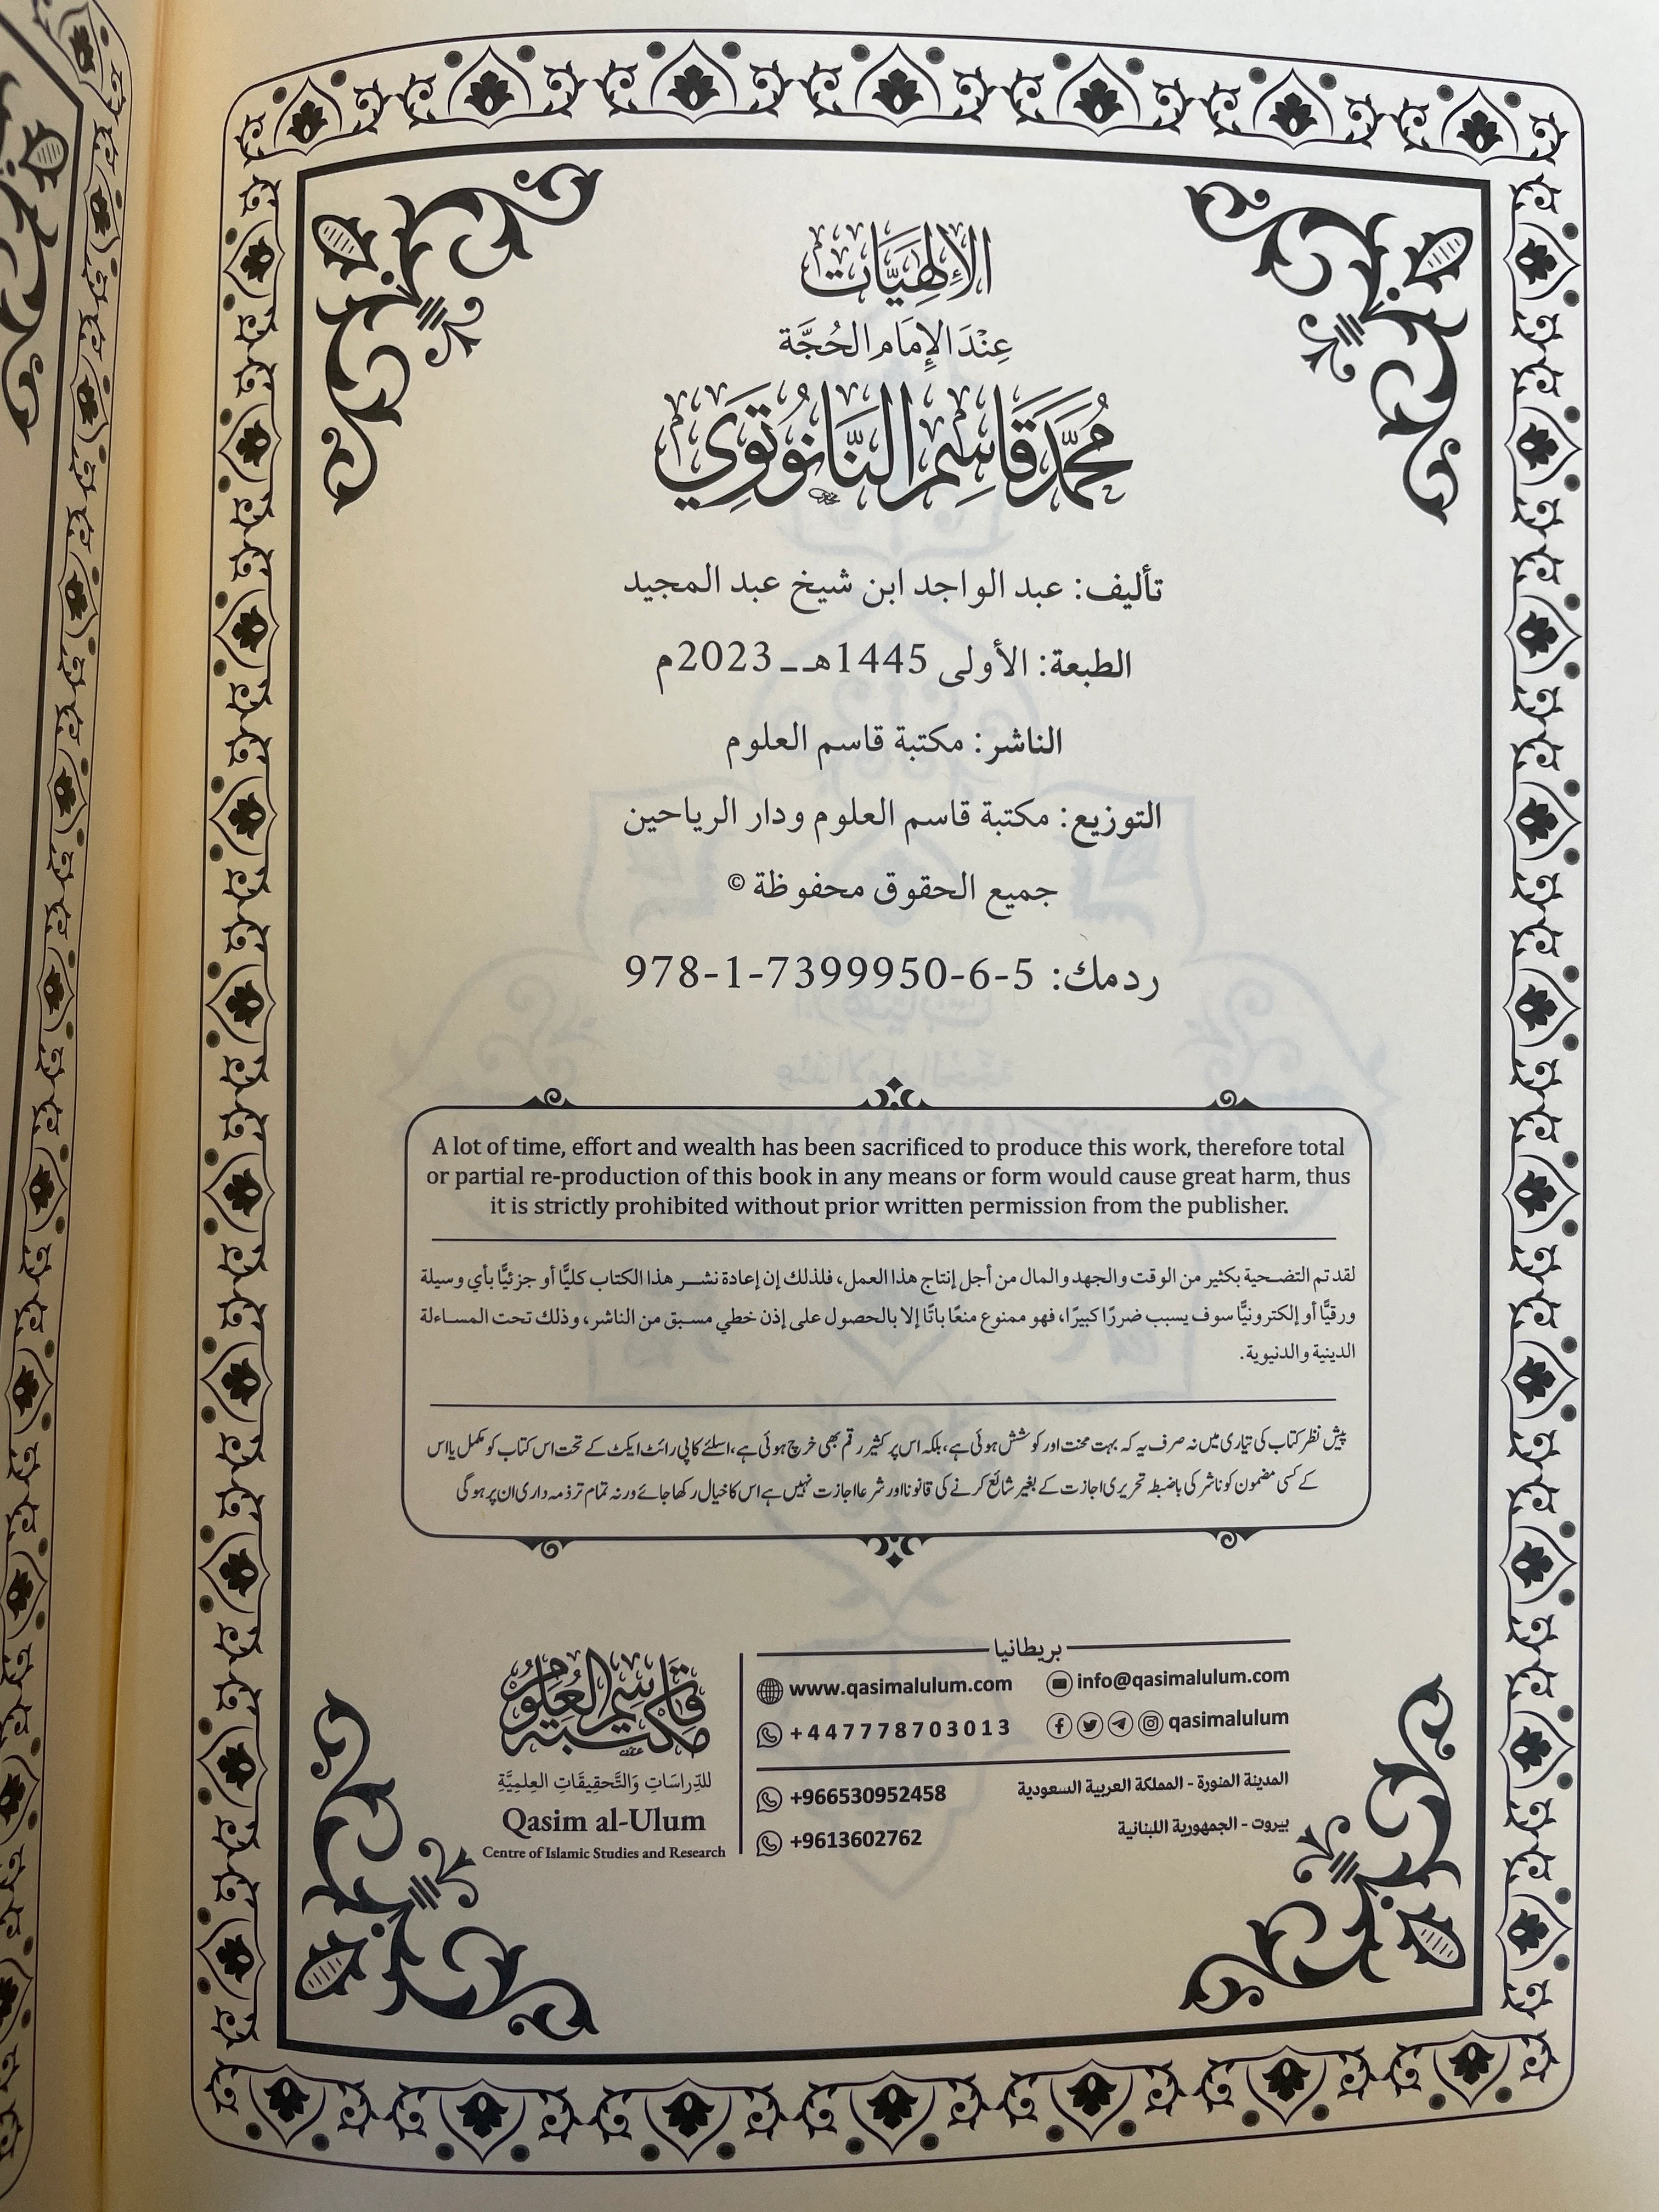 الإلهيَّات
عِنْدَ الإِمَامِ الحُجَّة
مُحَمَّد قَاسِم النَّانُوتَوِي
تأليف: عبد الواجد ابن شيخ عبد المجيد
الطبعة: الأولى 1445هـ ـ 2023م
الناشر: مكتبة قاسم العلوم
التوزيع: مكتبة قاسم العلوم ودار الرياحين
جميع الحقوق محفوظة ©
ردمك: 978-1-7399950-6-5
A lot of time, effort and wealth has been sacrificed to produce this work, therefore total
or partial re-production of this book in any means or form would cause great harm, thus
it is strictly prohibited without prior written permission from the publisher.
لقد تم التضحية بكثير من الوقت والجهد والمال من أجل إنتاج هذا العمل، فلذلك إن إعادة نشر هذا الكتاب كليًّا أو جزئيًّا بأي وسيلة
ورقيًّا أو إلكترونيًّا سوف يسبب ضررًا كبيرًا، فهو ممنوع منعًا باتًا إلا بالحصول على إذن خطي مسبق من الناشر، وذلك تحت المساءلة
الدينية والدنيوية.
پیش نظر کتاب کی تیاری میں نہ صرف یہ کہ بہت محنت اور کوشش ہوئی ہے، بلکہ اس پر کثیر رقم بھی خرچ ہوئی ہے، اسلئے کاپی رائٹ ایکٹ کے تحت اس کتاب کو مکمل یا اس
کے کسی مضمون کو ناشر کی باضبطہ تحریری اجازت کے بغیر شائع کرنے کی قانونا اور شرعا اجازت نہیں ہے اس کا خیال رکھا جائے ورنہ تمام تر ذمہ داری ان پر ہوگی
مكتبة قاسم العلوم
للدِّرَاسَاتِ وَالتَّحقِيقَاتِ العِلمِيَّةِ
Qasim al-Ulum
Centre of Islamic Studies and Research
بريطانيا
www.qasimalulum.com info@qasimalulum.com
+447778703013 qasimalulum
+966530952458 المدينة المنورة - المملكة العربية السعودية
+9613602762 بيروت - الجمهورية اللبنانية